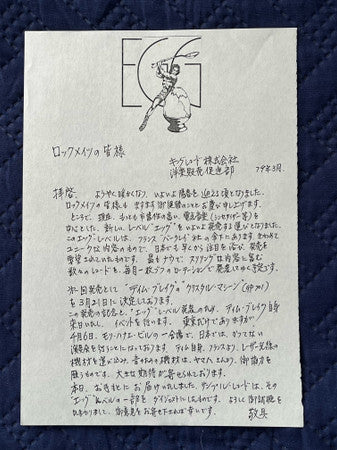 EG
ロックメイツの皆様
キングレコード株式会社
洋楽販売促進部 79年3月
拝啓
ようやく暖かくなり、いよいよ陽春を迎える頃となりました。
ロックメイツの皆様も ますます御健勝のこととお慶び申し上げます。
ところで、現在、もっとも市場性の高い、電気音楽(シンセサイザー等)を
中心とした、新しいレーベル"エッグ"をいよいよ発売する運びとなりました。
このエッグ・レーベルは、フランス"バークレイ"社の傘下にあります。きわめて
ユニークな内容のもので、日本でも早くから注目を浴び、発売を
要望されていたものです。最もナウで、スリリングな内容に富む
数々のレコードを、毎月一枚づつのローテーションで発売してゆく予定です。
第一回発売として "ティム・ブレイク"の"クリスタル・マシーン"
を3月21日に決定しております。
この発売の記念と、"エッグ"レーベル発足のため、ティム・ブレイク自身
来日いたし、イベントを行います。東京だけでありますが
4月6日、モリ・ハナエ・ビルの一会場で、日本では、かつてない
演奏会を行うことになっております。ティム自身、フランスより、レーザー光線の
機材を運び込み、音のための機材は、ヤマハさんより、御協力を
願うものです。大いなる期待が寄せられております。
本日、お手もとにお届けいたしました、サンプル・レコードは、その
"エッグ"レーベルの一部をダイジェストにしたものです。よろしく御試聴を
たまわりまして、御意見をお寄せ下されば幸いです。
敬具